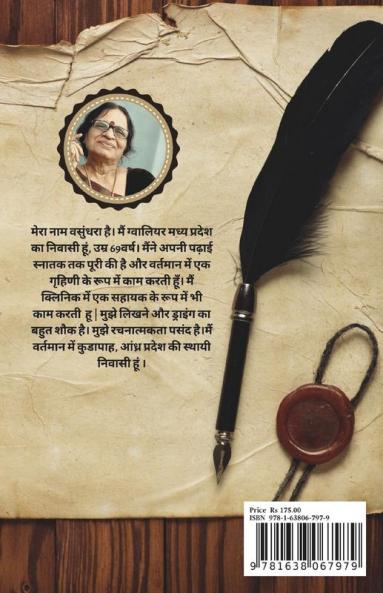 मेरा नाम वसुंधरा है। मैं ग्वालियर मध्य प्रदेश
का निवासी हूं, उम्र 69वर्ष। मैंने अपनी पढ़ाई
स्नातक तक पूरी की है और वर्तमान में एक
गृहिणी के रूप में काम करती हूँ। मैं
क्लिनिक में एक सहायक के रूप में भी
काम करती हू | मुझे लिखने और ड्राइंग का
बहुत शौक है। मुझे रचनात्मकता पसंद है।मैं
वर्तमान में कुडापाह, आंध्र प्रदेश की स्थायी
निवासी हूं ।
Price Rs 175.00
ISBN 978-1-63806-797-9
9 781638 067979